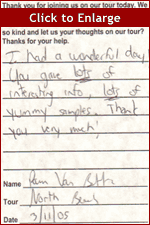 Thank you for joining us on our tour today. We
Click to Enlarge
so kind and let us your thoughts on our tour?
Thanks for your help.
I had a wonderful day
You gave lots of
interesting info, lots of
yummy samples. Thank
you very much!
Name Pam Van
Tour North
Date 3/11/05